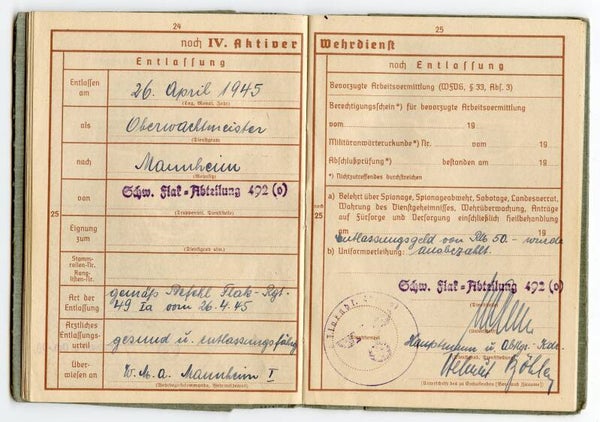 24
noch IV. Aktiver
Entlassung
Entlassen am
26. April 1945
(Tag, Monat, Jahr)
als
Oberwachtmeister
(Dienstgrad)
nach
Mannheim
von
Schw. Flak-Abteilung 492 (o)
(Truppenteil, Dienststelle)
25
Eignung zum
(Dienstgrad usw.)
Stammrollen-Nr.
Ranglisten-Nr.
Art der Entlassung
gemäß Befehl Flak-Rgt.
49 Ia vom 26.4.45
Ärztliches Entlassungsurteil
gesund u. entlassungsfähig
Überwiesen an
W.M.A. Mannheim I
25
Wehrdienst
noch Entlassung
Bevorzugte Arbeitsvermittlung (WFVG. § 33, Abs. 3)
Berechtigungsschein*) für bevorzugte Arbeitsvermittlung
vom 19
Militäranwärterurkunde*) Nr. vom 19
Abschlußprüfung*) bestanden am 19
*) Nichtzutreffendes durchstreichen
25
a) Belehrt über Spionage, Spionageabwehr, Sabotage, Landesverrat,
Wahrung des Dienstgeheimnisses, Wehrüberwachung, Anträge
auf Fürsorge und Versorgung einschließlich Heilbehandlung
am 19
Entlassungsgeld von RM 50.- wurde
b) Uniformverleihung: ausbezahlt.
Schw. Flak-Abteilung 492 (o)
Hauptmann u. Abtlgs.-Kdr.
Helmut